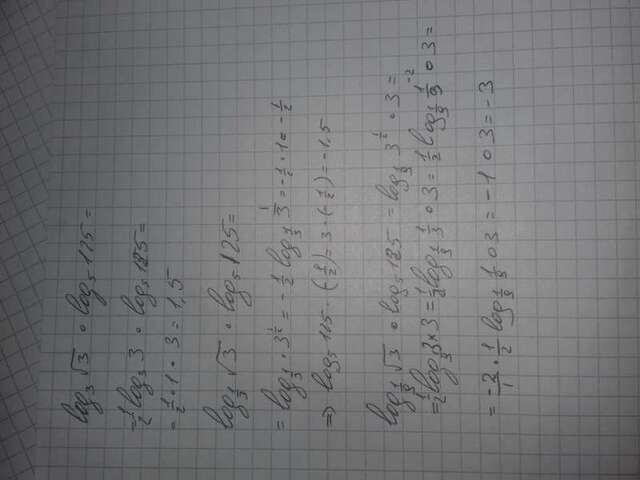 log₃ √3 · log₅ 125 =
= 1/2 log₃ 3 · log₅ 125 =
= 1/2 · 1 · 3 = 1,5
log_{1/3} √3 · log₅ 125 =
= log_{1/3} · 3^{1/2} = -1/2 log_{1/3} 1/3 = -1/2 · 1 = -1/2
⇒ log₅ 125 · (-1/2) = 3 · (-1/2) = -1,5
log_{1/9} √3 · log₅ 125 = log_{1/9} 3^{1/2} · 3 =
= 1/2 log_{1/9} 3 × 3 = 1/2 log_{1/9} 1/3 · 3 = 1/2 log_{1/9} 1/9^{-2} · 3 =
= -2/1 · 1/2 log_{1/9} 1/9 · 3 = -1 · 3 = -3